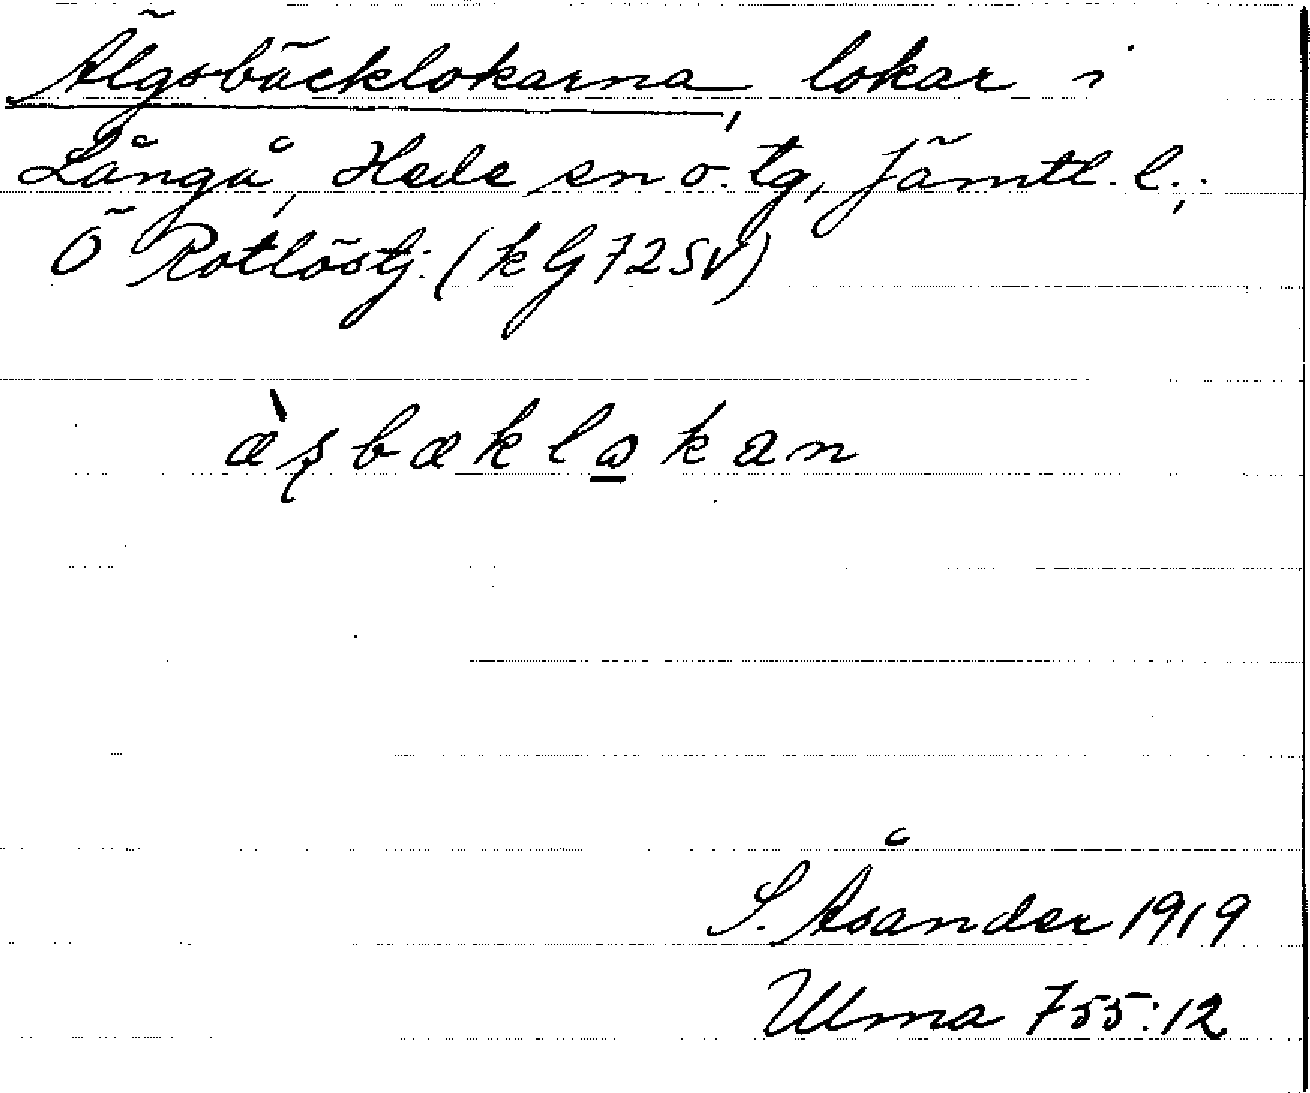 Älgsbäcklokarna, lokar i
Långå, Hede sn o. tg, Jämtl. l.;
Ö Rotlöstj. (k G 72 SV)
æ̀ʂbæklo̱kan
S. Åsander 1919
Ulma 755:12